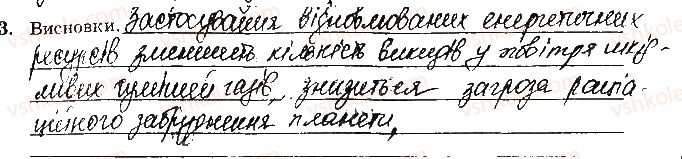 3. Висновки. Застосування відновлюваних енергетичних
ресурсів зменшить кількість викидів у повітря шкід-
ливих сумішей газів, знизиться загроза радіа-
ційного забруднення планети,